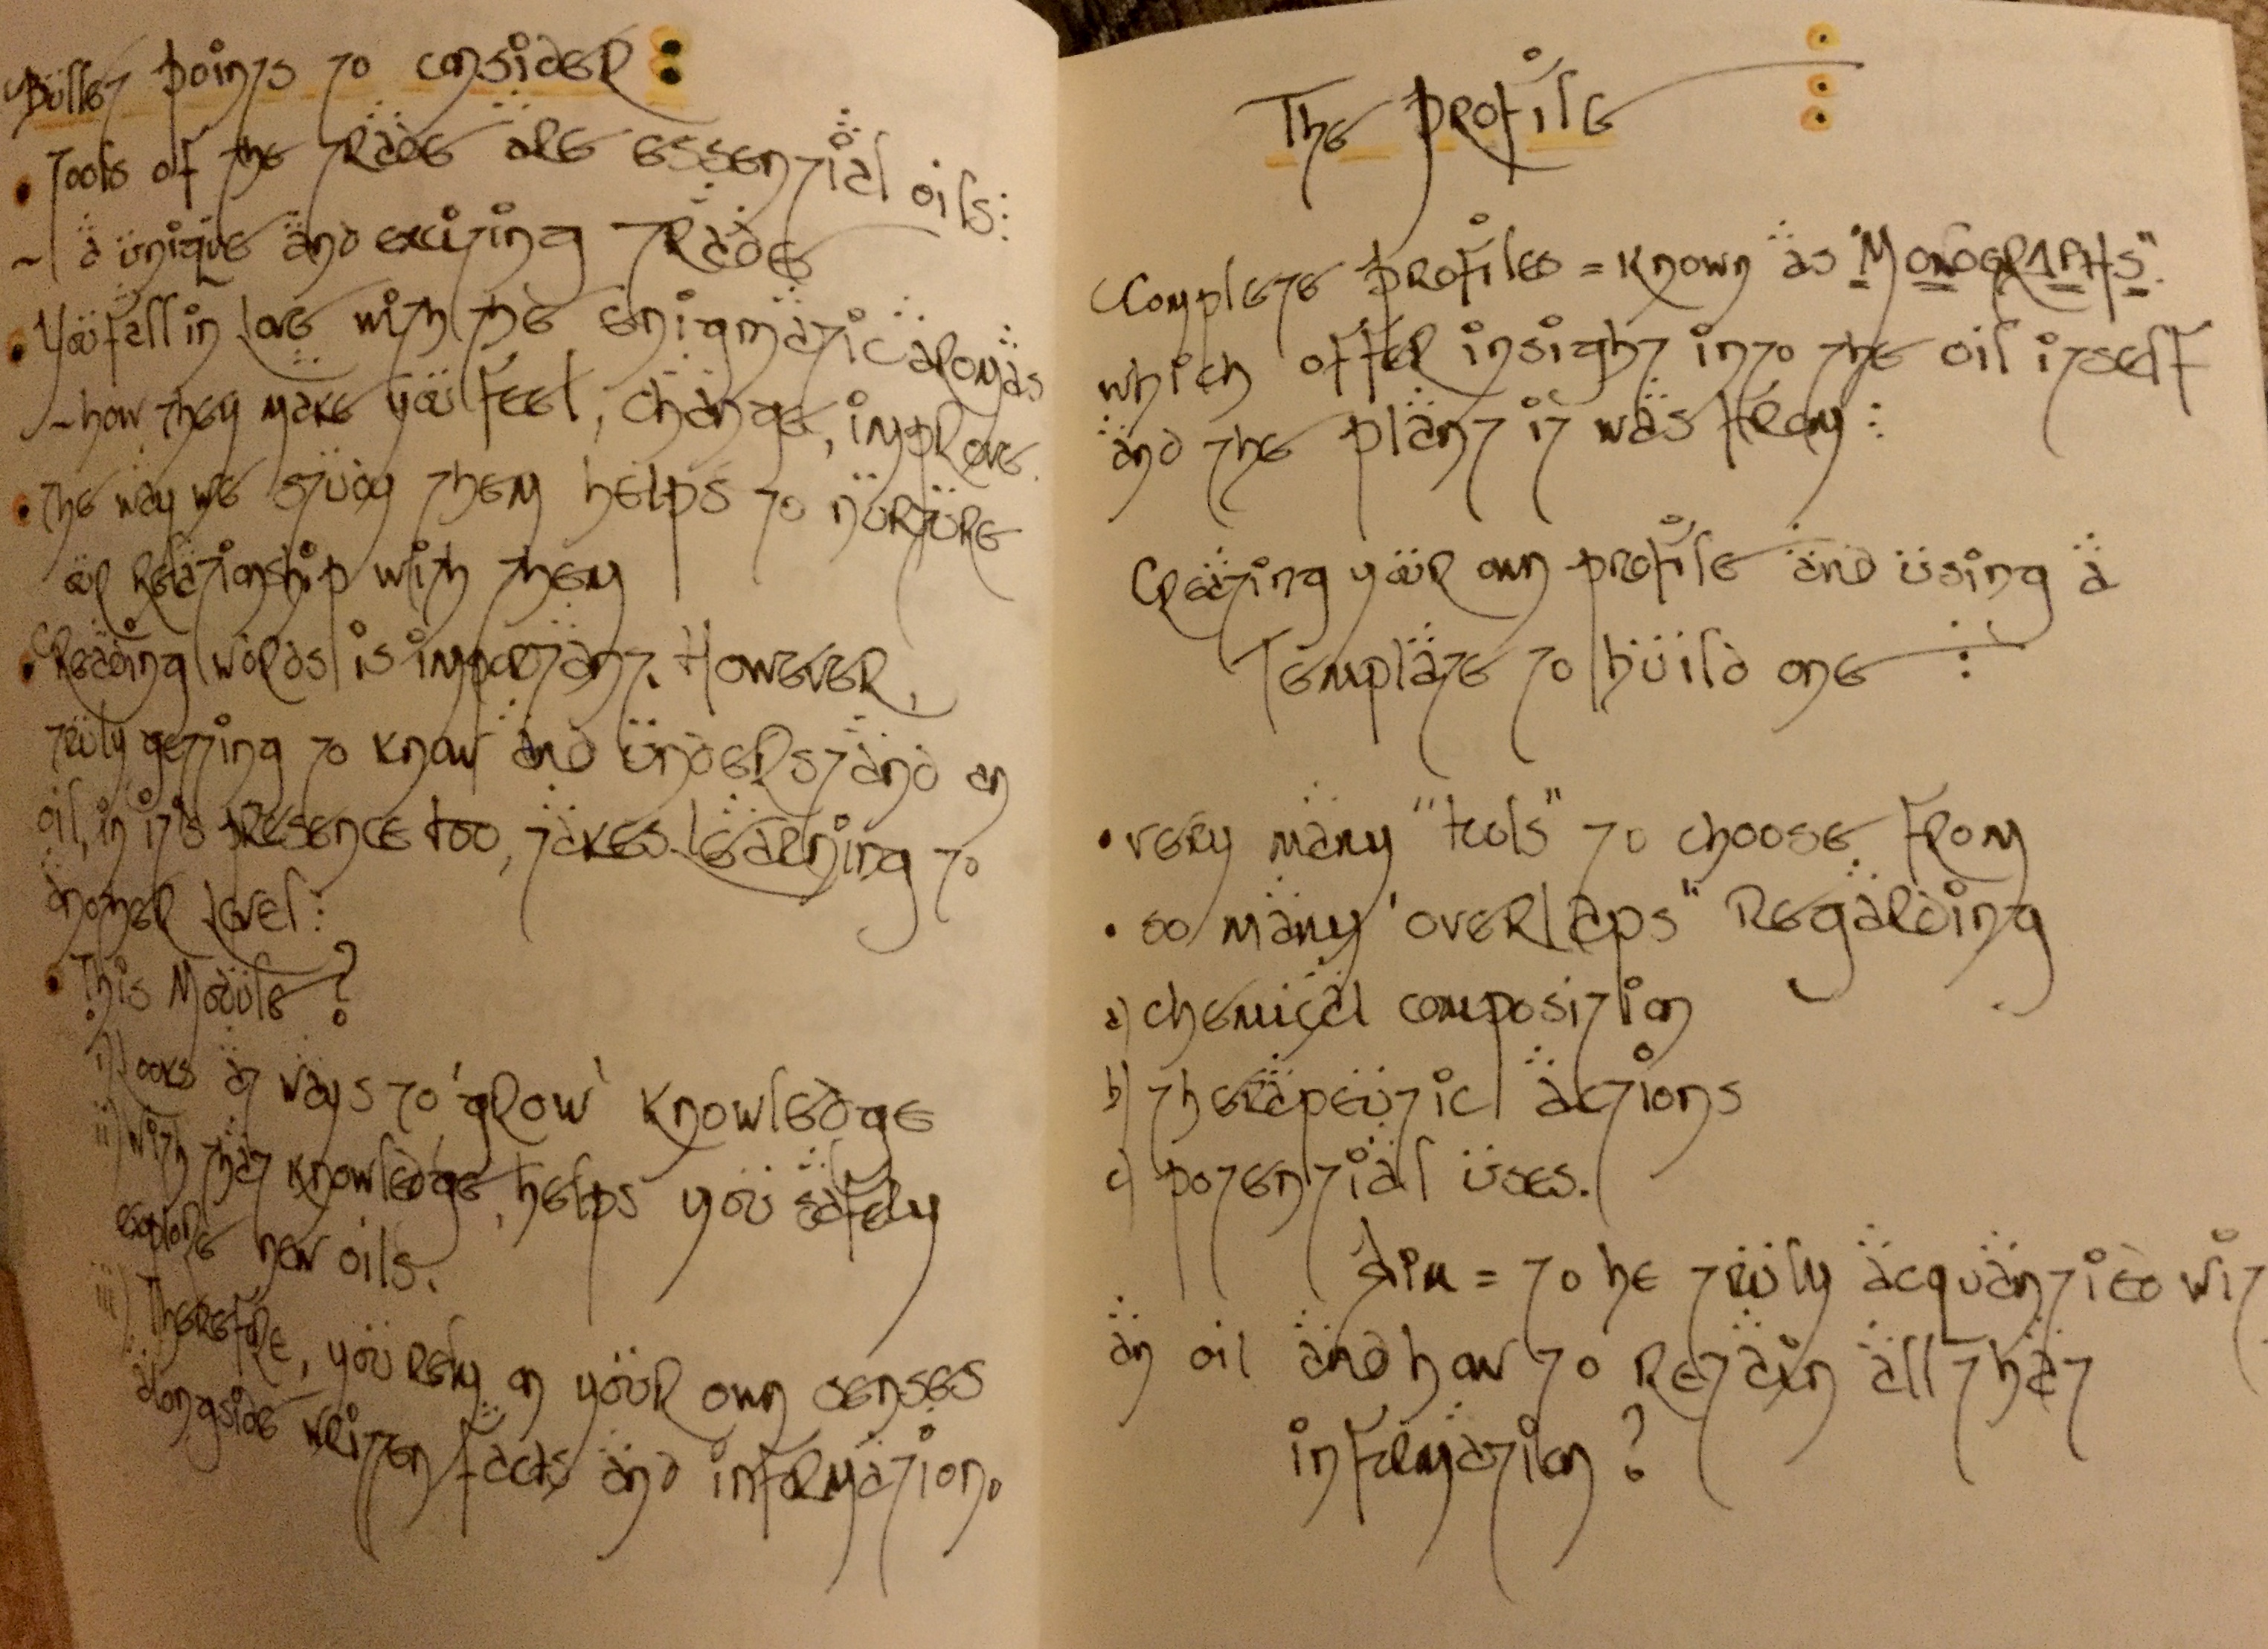 Bullet points to consider:
• Tools of the trade are essential oils:
~ a unique and exciting trade
• You fall in love with the enigmatic aromas
~ how they make you feel, change, improve.
• The way we study them helps to nurture
our relationship with them
• Reading words is important. However,
truly getting to know and understand an
oil, in it's presence too, takes learning to
another level:
• This Module?
i) Looks at ways to 'grow' knowledge
ii) With that knowledge, helps you safely
explore new oils.
iii) Therefore, you rely on your own senses
alongside written facts and information.
The Profile
Complete profiles = known as "MONOGRAPHS".
which offer insight into the oil itself
and the plant it was from:
Creating your own profile and using a
Template to build one :
• very many "tools" to choose from
• so many 'overlaps" Regarding
a) chemical composition
b) therapeutic actions
c) potential uses.
Aim = to be truly acquantied wit
an oil and how to retain all that
information?